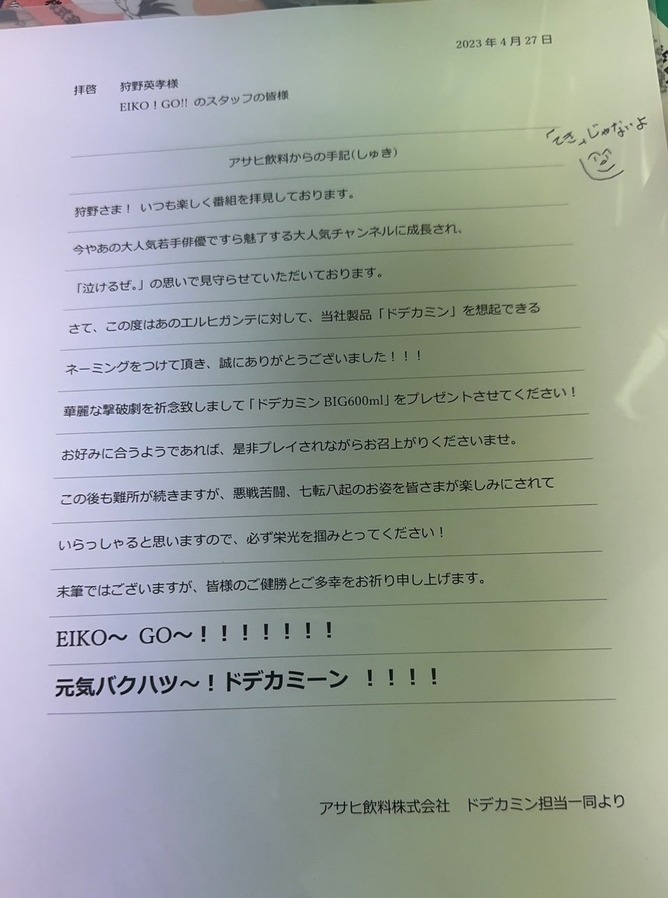 2023年4月27日
拝啓　狩野英孝様
EIKO！GO!! のスタッフの皆様
「てき」じゃないよ
アサヒ飲料からの手記(しゅき)
狩野さま！ いつも楽しく番組を拝見しております。
今やあの大人気若手俳優ですら魅了する大人気チャンネルに成長され、
「泣けるぜ。」の思いで見守らせていただいております。
さて、この度はあのエルヒガンテに対して、当社製品「ドデカミン」を想起できる
ネーミングをつけて頂き、誠にありがとうございました！！！
華麗な撃破劇を祈念致しまして「ドデカミン BIG600ml」をプレゼントさせてください！
お好みに合うようであれば、是非プレイされながらお召上がりくださいませ。
この後も難所が続きますが、悪戦苦闘、七転八起のお姿を皆さまが楽しみにされて
いらっしゃると思いますので、必ず栄光を掴みとってください！
末筆ではございますが、皆様のご健勝とご多幸をお祈り申し上げます。
EIKO～ GO～！！！！！！！
元気バクハツ～！ドデカミーン ！！！！
アサヒ飲料株式会社　ドデカミン担当一同より